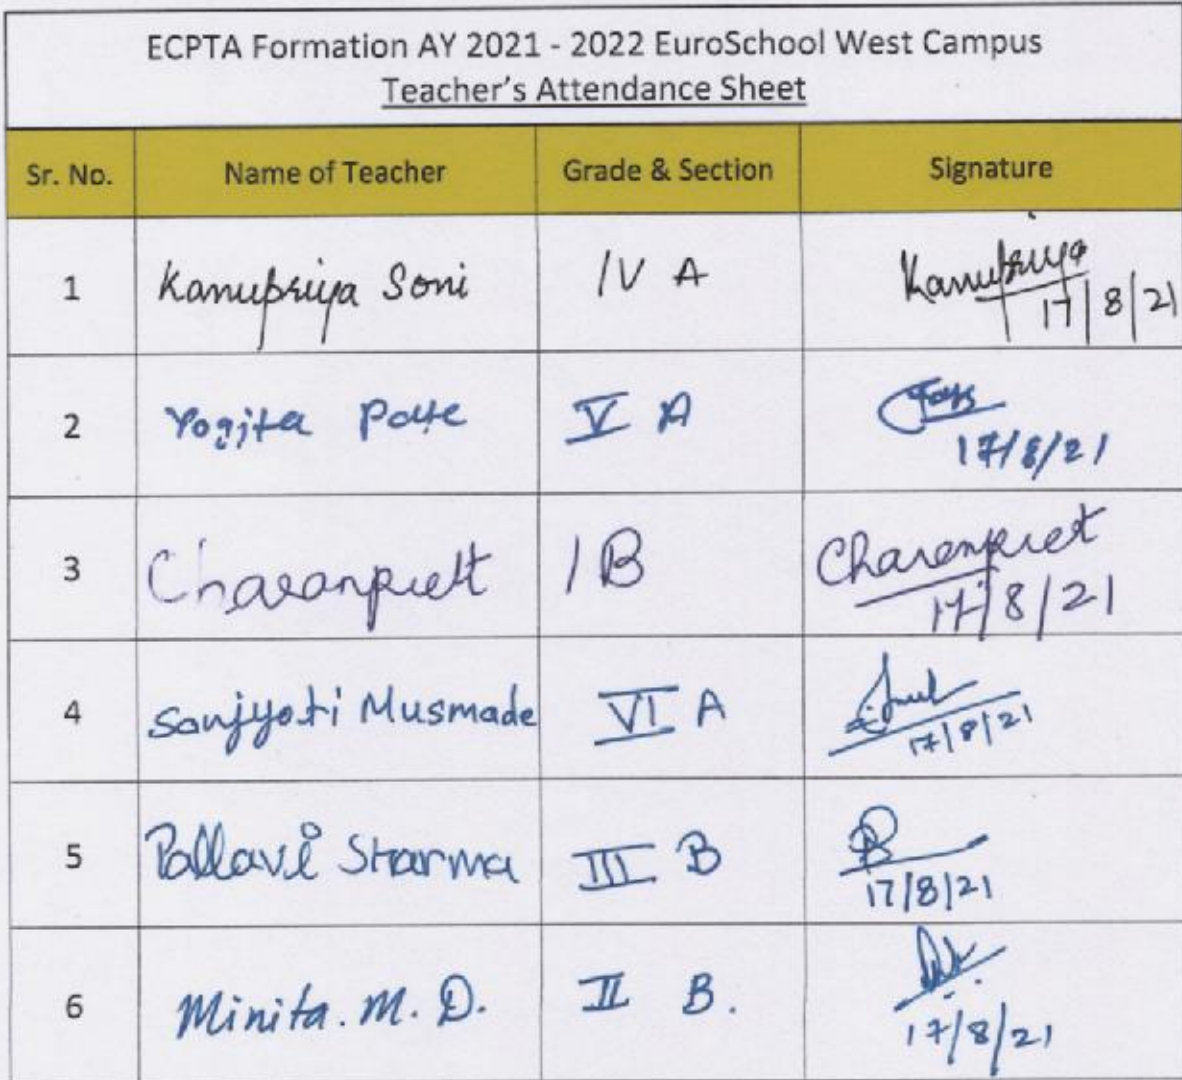 ECPTA Formation AY 2021 - 2022 EuroSchool West Campus
Teacher's Attendance Sheet
Sr. No. Name of Teacher Grade & Section Signature
1 Kanupriya Soni IV A Kanupriya 17/8/21
2 Yogita V A 17/8/21
3 Charanpreet I B Charanpreet 17/8/21
4 Sanjyoti Musmade VI A 17/8/21
5 Pallavi Sharma III B 17/8/21
6 Minita. M. D. II B. 17/8/21